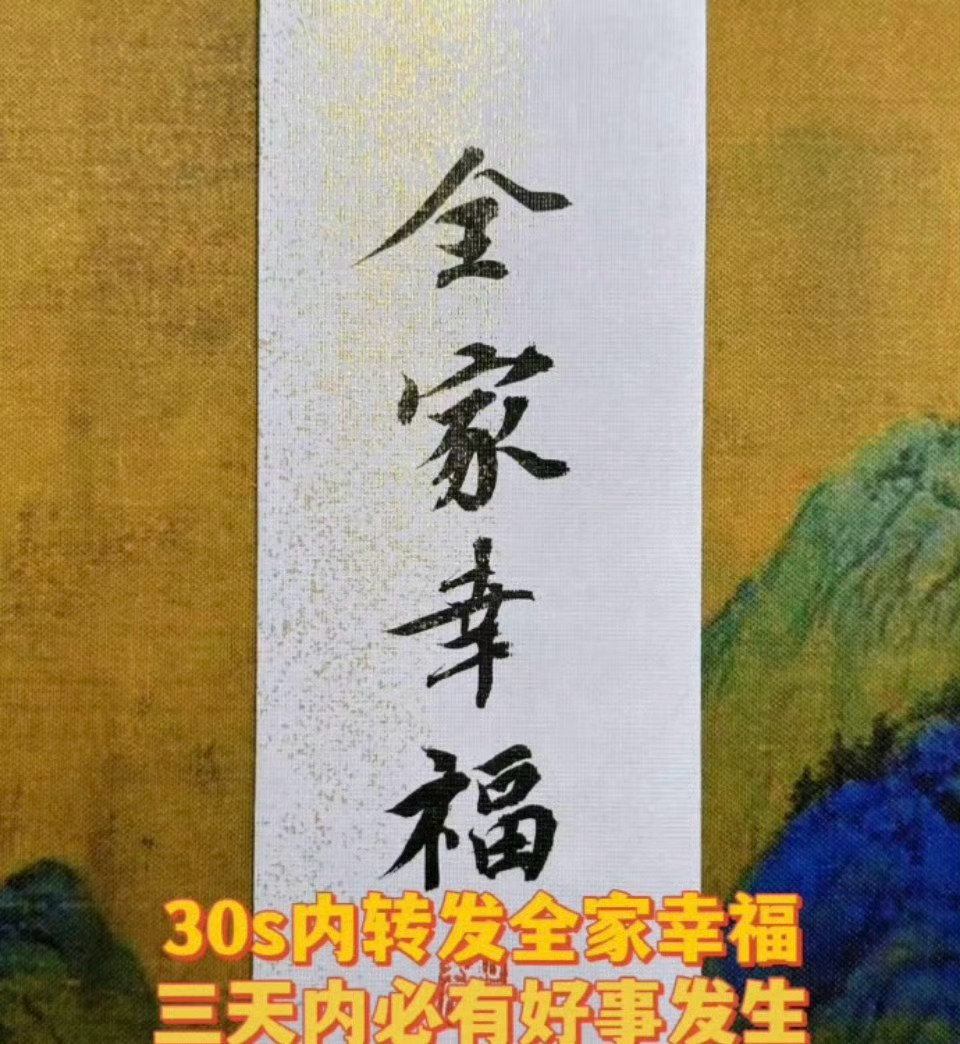 全家幸福
30s内转发全家幸福
三天内必有好事发生